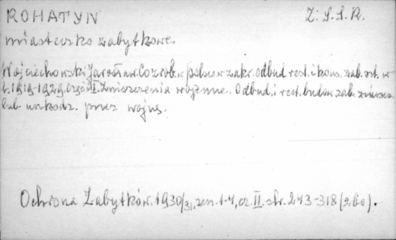 ROHATYN Z.S.S.R.
miasteczko zabytkowe.
Wojciechowski Jarosław. Co zrob. w polsce w zakr. odbud. rest. i kons. zab. art. w
l. 1919-1929. Część I. Zniszczenia wojenne. Odbud. i rest. budow. zab. zniszcz.
lub uszkodz. przez wojnę.
Ochrona Zabytków. 1930/31, zesz. 1-4, cz. II. str. 243-318 (260).